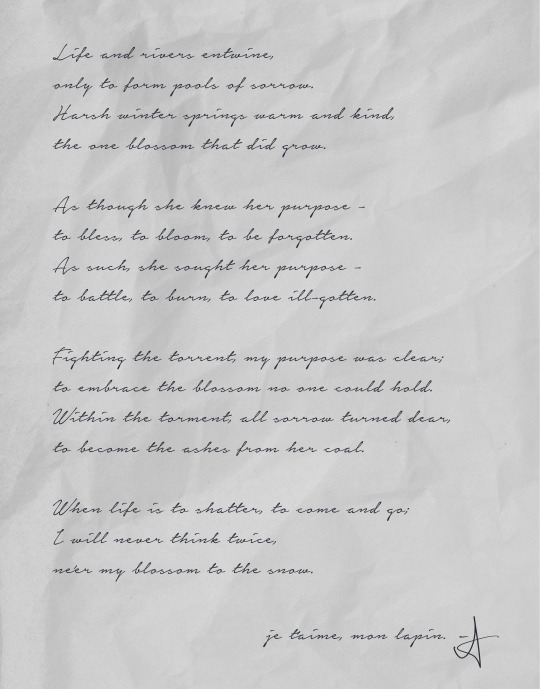 Life and rivers entwine,
only to form pools of sorrow.
Harsh winter springs warm and kind,
the one blossom that did grow.
As though she knew her purpose -
to bless, to bloom, to be forgotten.
As such, she sought her purpose -
to battle, to burn, to love ill-gotten.
Fighting the torrent, my purpose was clear;
to embrace the blossom no one could hold.
Within the torment, all sorrow turned dear,
to become the ashes from her coal.
When life is to shatter, to come and go;
I will never think twice,
ne'er my blossom to the snow.
je t'aime, mon lapin. -A